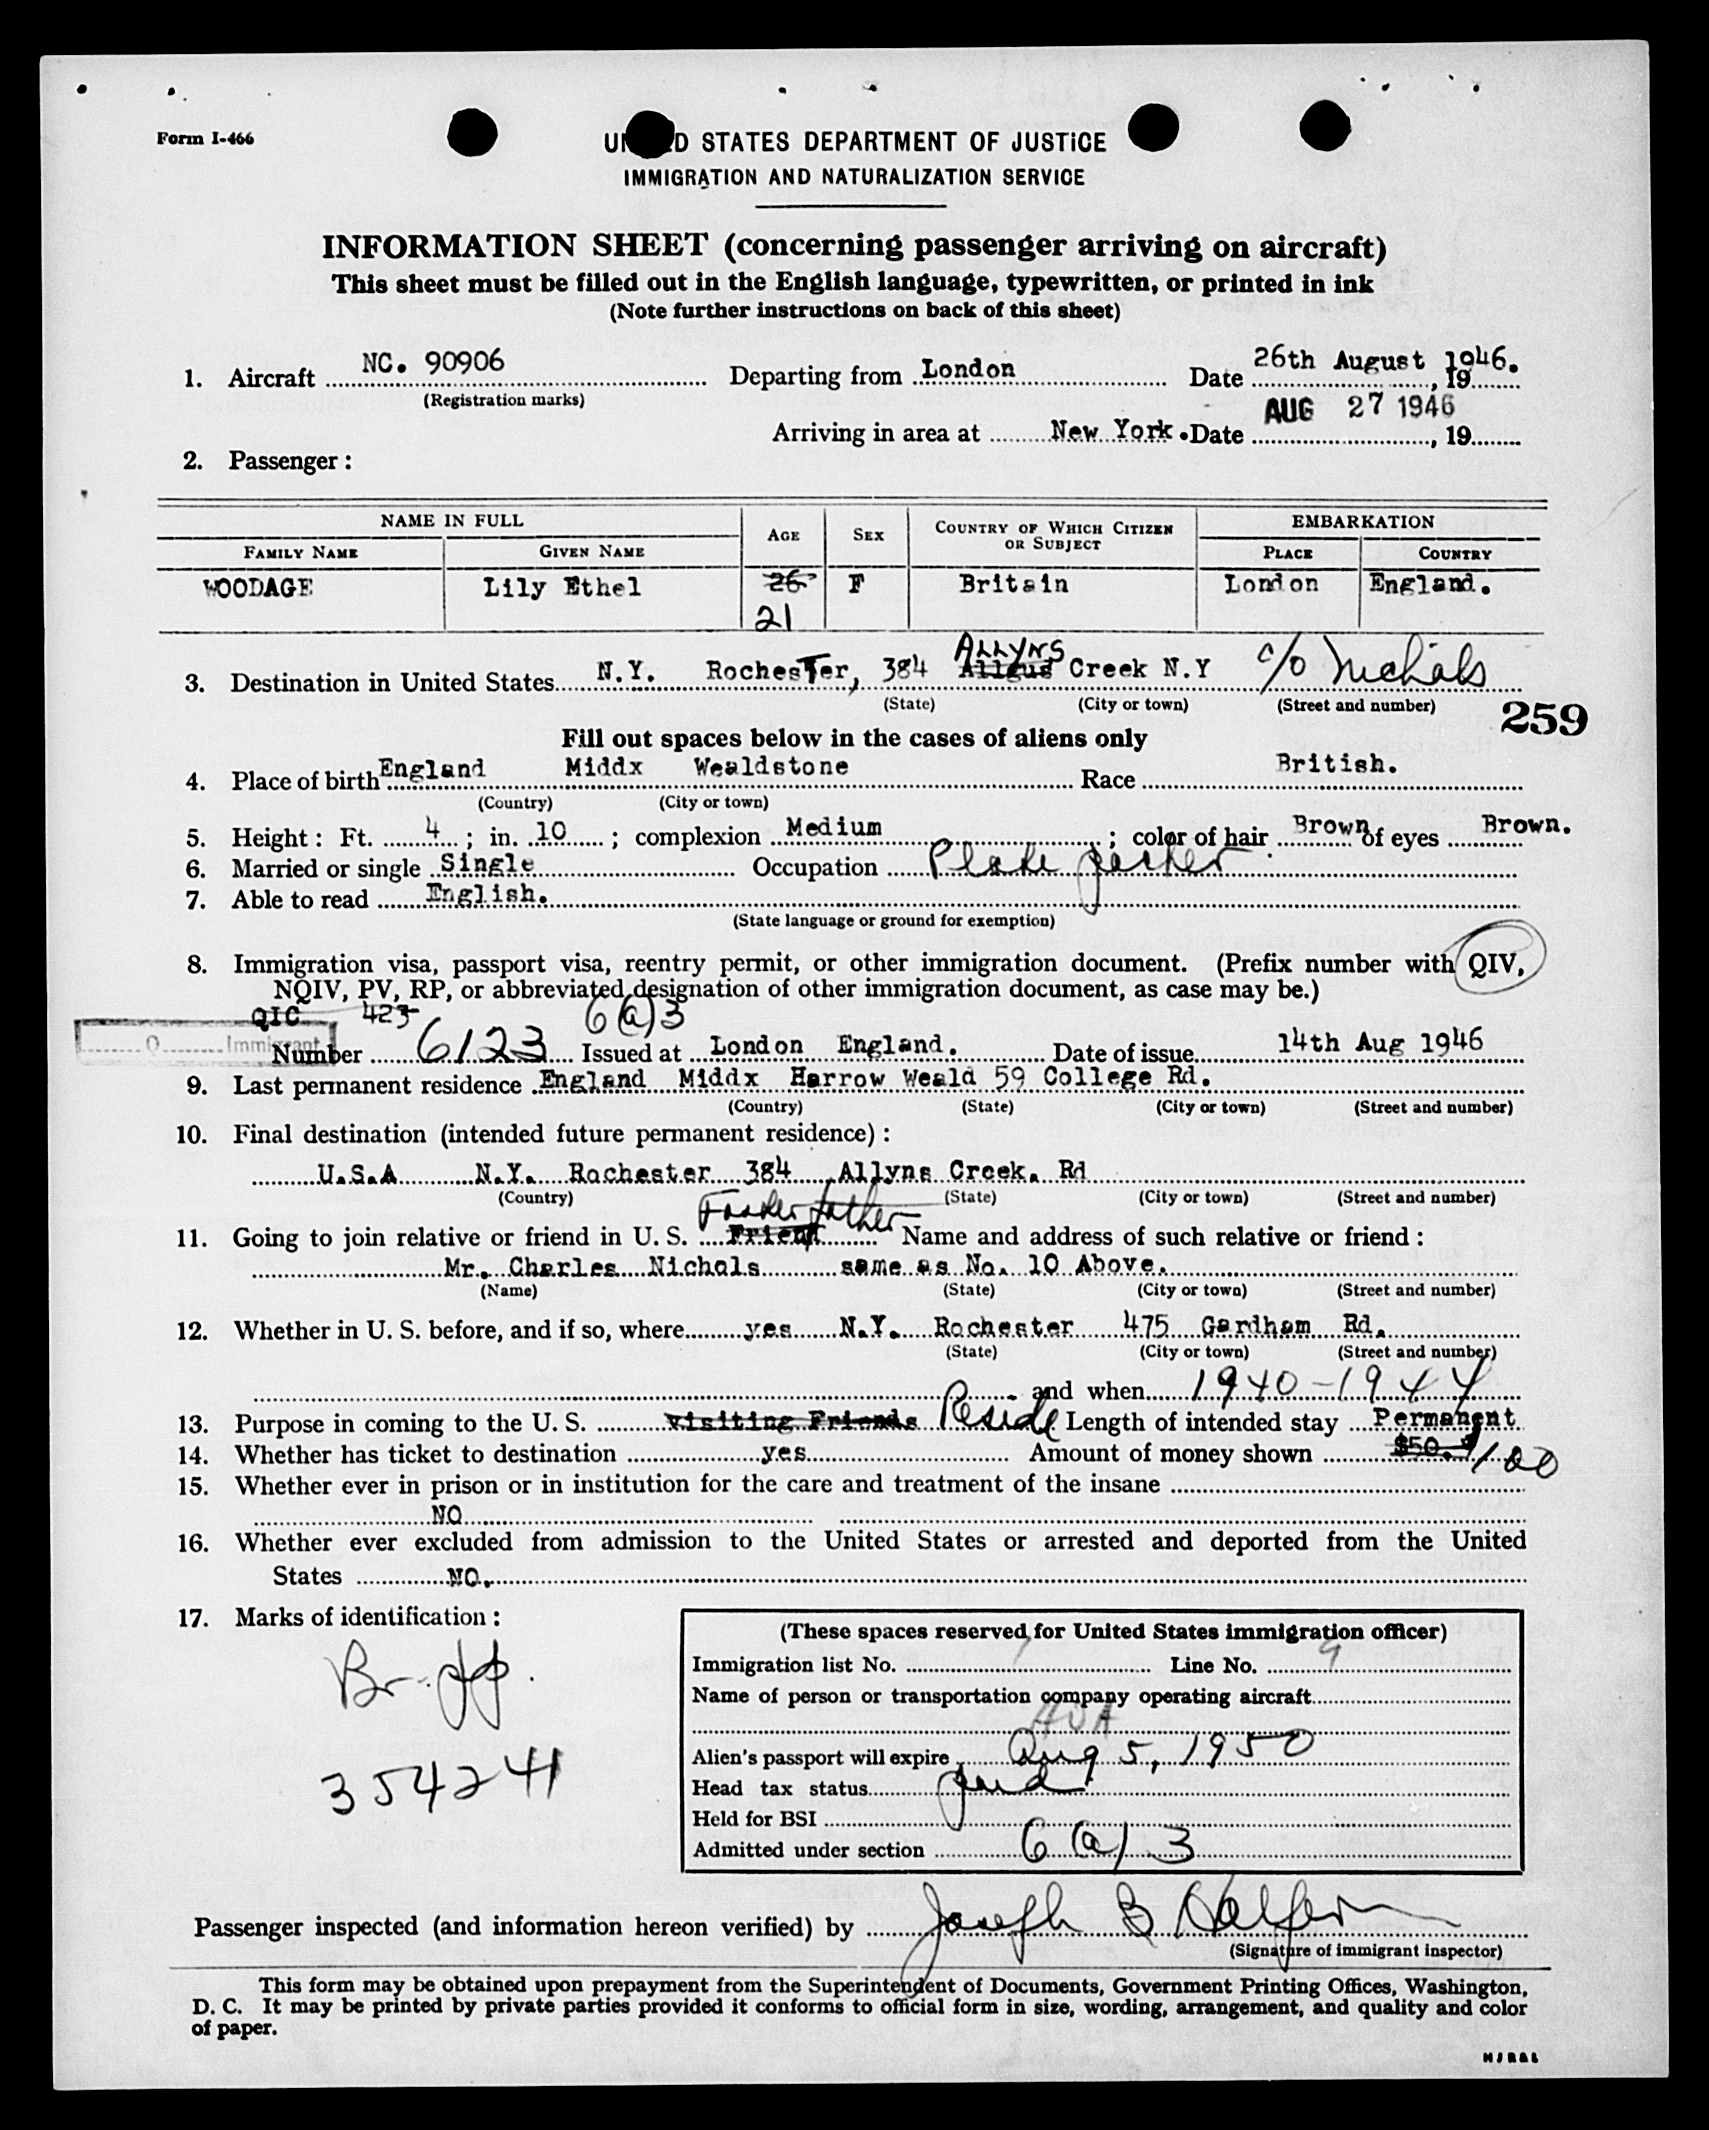 Form I-466
UNITED STATES DEPARTMENT OF JUSTICE
IMMIGRATION AND NATURALIZATION SERVICE
INFORMATION SHEET (concerning passenger arriving on aircraft)
This sheet must be filled out in the English language, typewritten, or printed in ink
(Note further instructions on back of this sheet)
1. Aircraft NC. 90906 Departing from London Date 26th August 1946., 19
(Registration marks)
Arriving in area at New York. Date AUG 27 1946, 19
2. Passenger:
NAME IN FULL AGE SEX COUNTRY OF WHICH CITIZEN OR SUBJECT EMBARKATION
FAMILY NAME GIVEN NAME PLACE COUNTRY
WOODAGE Lily Ethel 26 F Britain London England.
21
ALLYNS
3. Destination in United States N.Y. Rochester, 384 Allgus Creek N.Y c/o Nichols
(State) (City or town) (Street and number)
259
Fill out spaces below in the cases of aliens only
4. Place of birth England Middx Wealdstone Race British.
(Country) (City or town)
5. Height: Ft. 4; in. 10; complexion Medium; color of hair Brown of eyes Brown.
6. Married or single Single Occupation
7. Able to read English.
(State language or ground for exemption)
8. Immigration visa, passport visa, reentry permit, or other immigration document. (Prefix number with QIV,
NQIV, PV, RP, or abbreviated designation of other immigration document, as case may be.)
QIC 423 6(a)3
Q Immigrant Number 6123 Issued at London England. Date of issue 14th Aug 1946
9. Last permanent residence England Middx Harrow Weald 59 College Rd.
(Country) (State) (City or town) (Street and number)
10. Final destination (intended future permanent residence):
U.S.A N.Y. Rochester 384 Allyns Creek. Rd
(Country) (State) (City or town) (Street and number)
Foster father
11. Going to join relative or friend in U. S. Friend Name and address of such relative or friend:
Mr. Charles Nichols same as No. 10 Above.
(Name) (State) (City or town) (Street and number)
12. Whether in U. S. before, and if so, where yes N.Y. Rochester 475 Gardham Rd.
(State) (City or town) (Street and number)
and when 1940-1944
13. Purpose in coming to the U. S. visiting Friends Reside Length of intended stay Permanent
14. Whether has ticket to destination yes Amount of money shown $50. $100
15. Whether ever in prison or in institution for the care and treatment of the insane
NO
16. Whether ever excluded from admission to the United States or arrested and deported from the United
States NO.
17. Marks of identification:
Br. pp.
354241
(These spaces reserved for United States immigration officer)
Immigration list No. 1 Line No. 9
Name of person or transportation company operating aircraft
AOA
Alien's passport will expire Aug 5, 1950
Head tax status paid
Held for BSI
Admitted under section 6(a)3
Passenger inspected (and information hereon verified) by Joseph B Halpern
(Signature of immigrant inspector)
This form may be obtained upon prepayment from the Superintendent of Documents, Government Printing Offices, Washington,
D. C. It may be printed by private parties provided it conforms to official form in size, wording, arrangement, and quality and color
of paper.